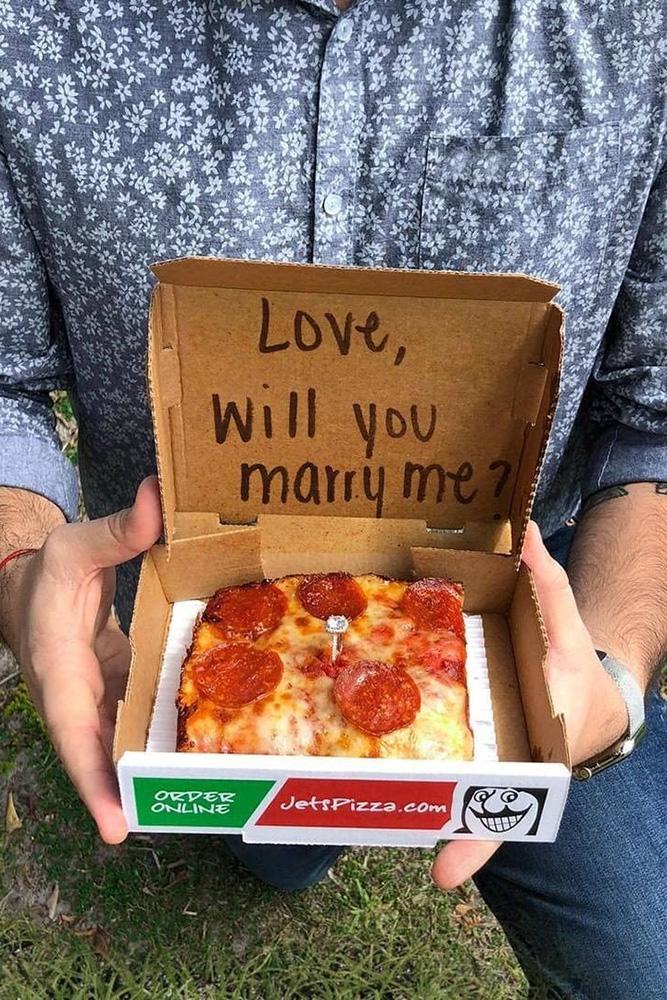 Love,
will you
marry me?
ORDER
ONLINE
JetsPizza.com